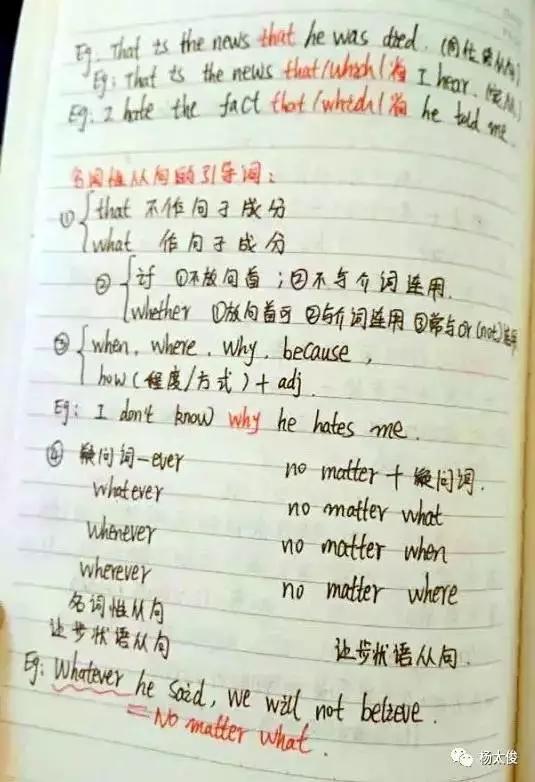 Eg. That is the news that he was died. (同位语从句)
Eg: That is the news that/which/省 I hear. (定从)
Eg: I hate the fact that/which/省 he told me.
名词性从句的引导词:
① { that 不作句子成分
what 作句子成分
② { if ①不放句首 ; ②不与介词连用.
whether ①放句首可 ②与介词连用 ③常与or(not)连用
③ { when, where, why, because,
how(程度/方式)+adj.
Eg: I don't know why he hates me.
④ 疑问词-ever no matter + 疑问词.
whatever no matter what
whenever no matter when
wherever no matter where
名词性从句
让步状语从句 让步状语从句.
Eg: Whatever he said, we will not believe.
= No matter what.
杨太俊